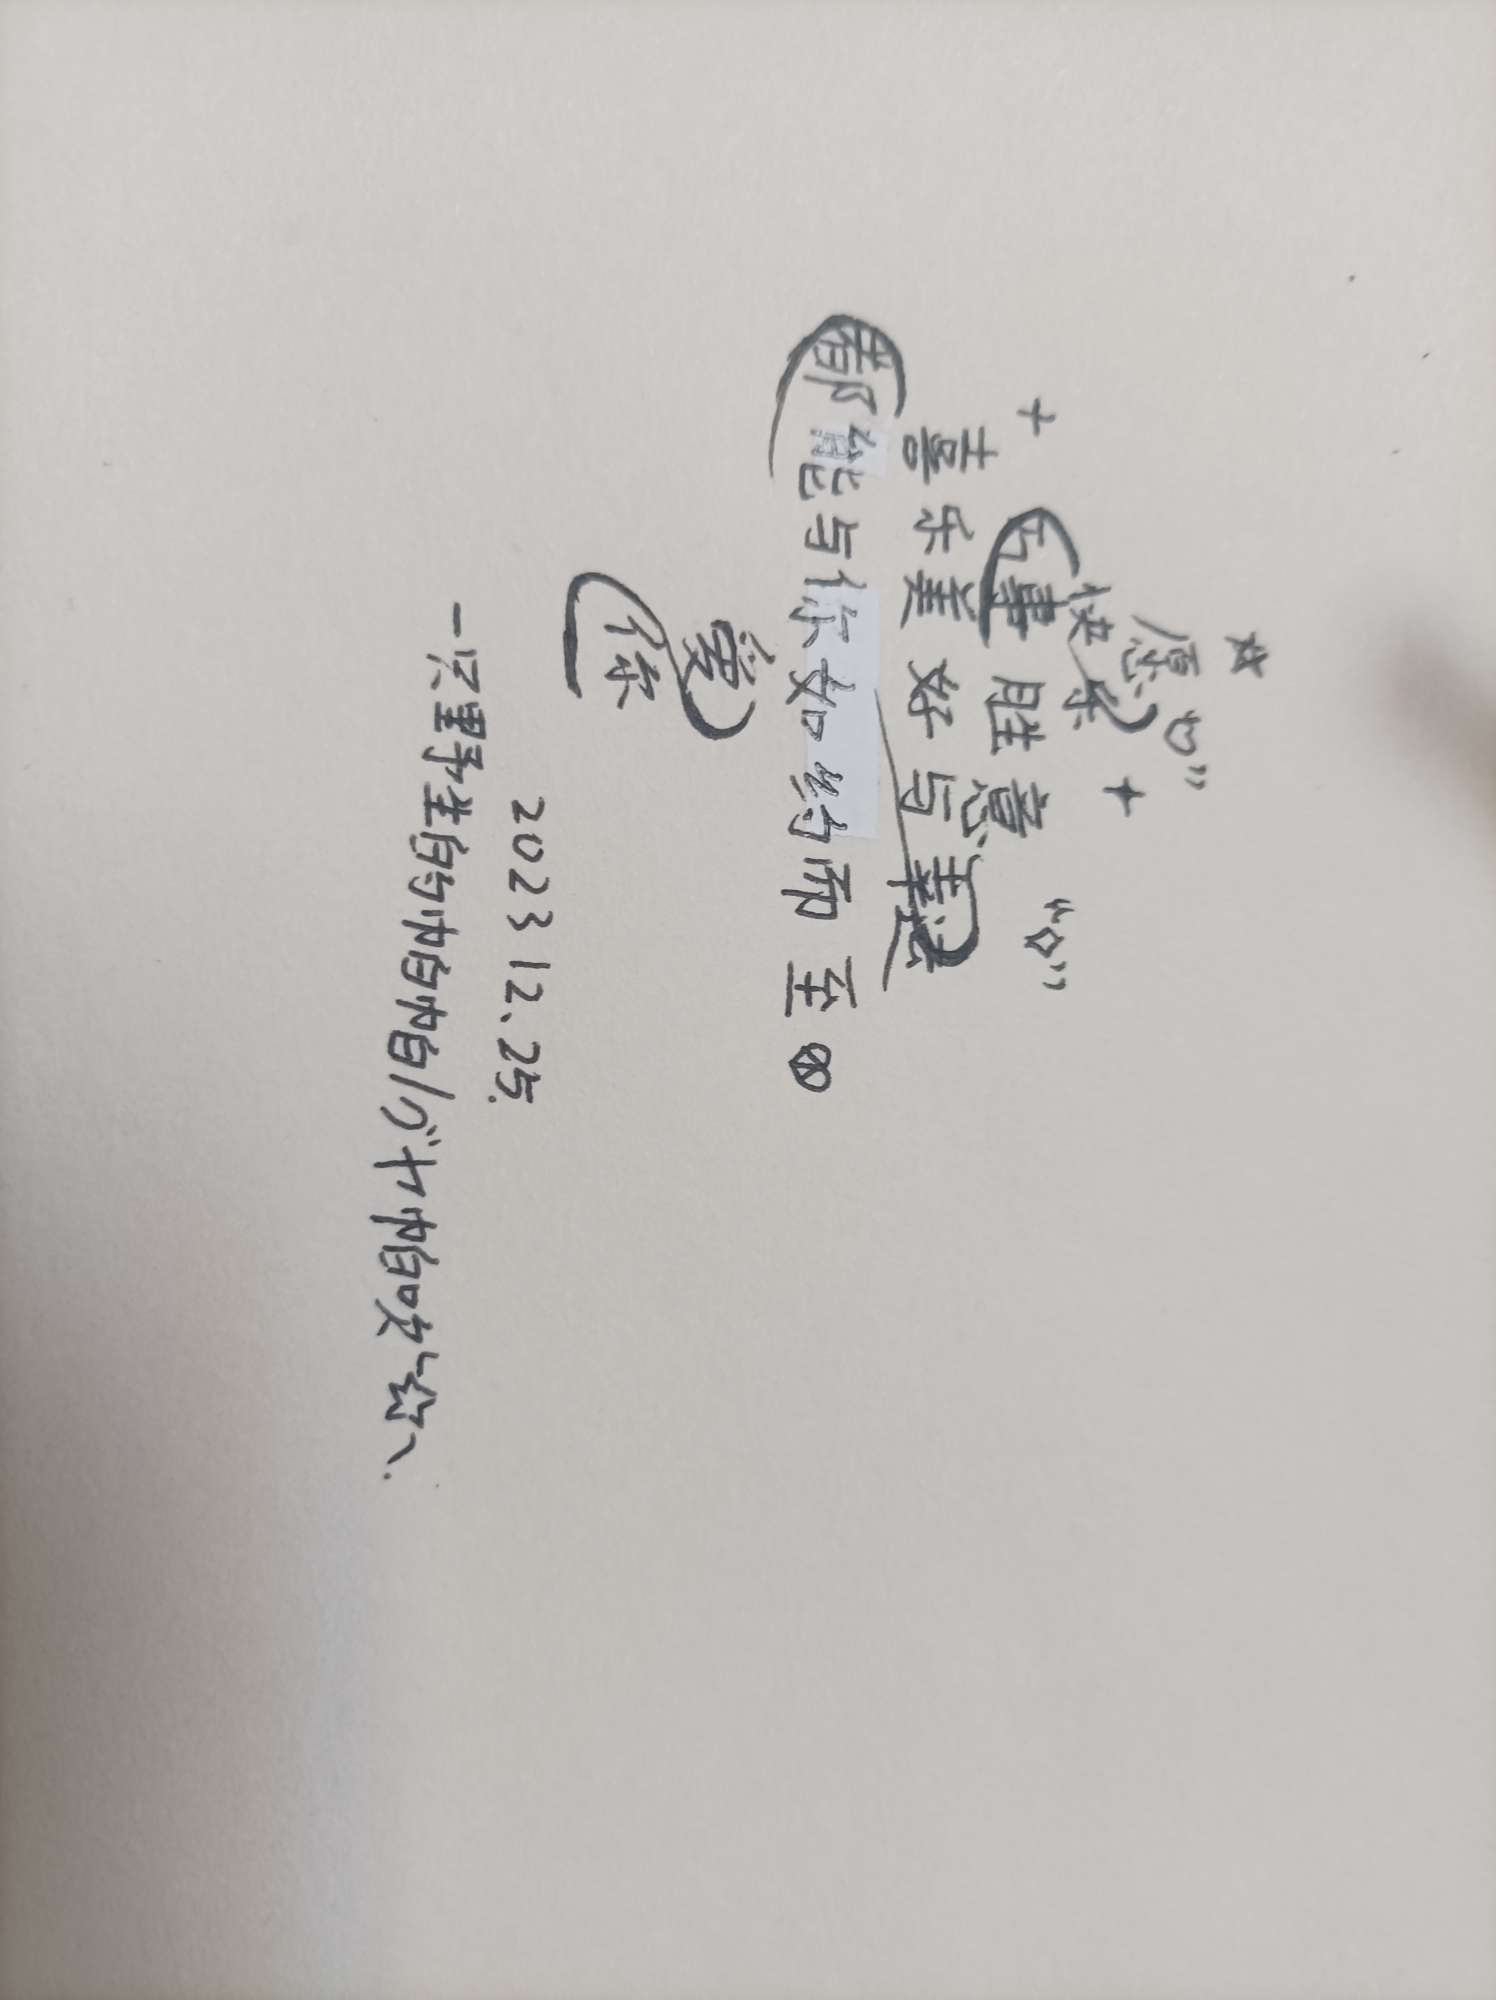 愿
快乐
万事胜意
喜乐美好与幸运
都能与你如约而至
爱
你
2023 12.25.
一只野生的帕帕/